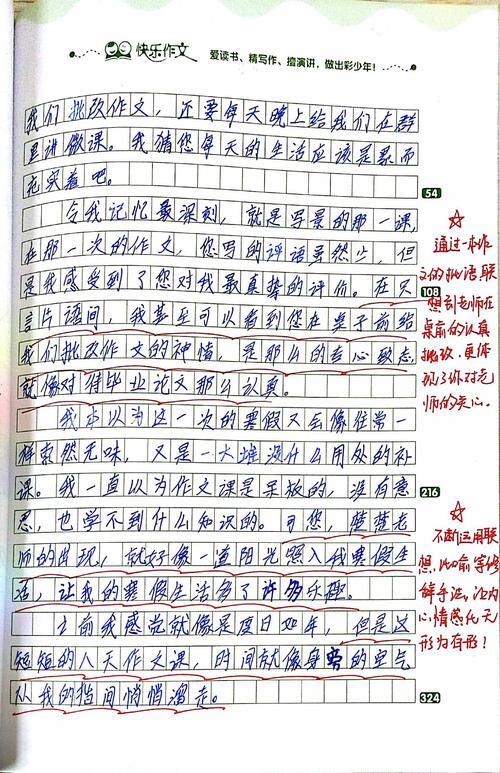 快乐作文
爱读书、精写作、擅演讲，做出彩少年！
我们批改作文，还要每天晚上给我们在群
里讲微课。我猜您每天的生活应该是累而
充实着吧。
54
令我记忆最深刻，就是写景的那一课，
在那一次的作文，您写的评语虽然少，但
是我感受到了您对我最真挚的评价。在只
108
言片语间，我甚至可以看到您在桌子前给
我们批改作文的神情，是那么的专心致志，
就像对待毕业论文那么认真。
我本以为这一次的寒假又会像往常一
样索然无味，又是一大堆没什么用处的补
课。我一直以为作文课是呆板的，没有意
216
思，也学不到什么知识的。可您，楚楚老
师的出现，就好像一道阳光照入我寒假生
活，让我的寒假生活多了许多乐趣。
之前我感觉就像是度日如年，但是这
短短的八天作文课，时间就像身旁的空气
从我的指间悄悄溜走。
324
通过一本作
文的批语联
想到老师在
桌前的认真
批改，更体
现了你对老
师的关心。
不断运用联
想，比喻等修
辞手法，让内
心情感化无
形为有形！